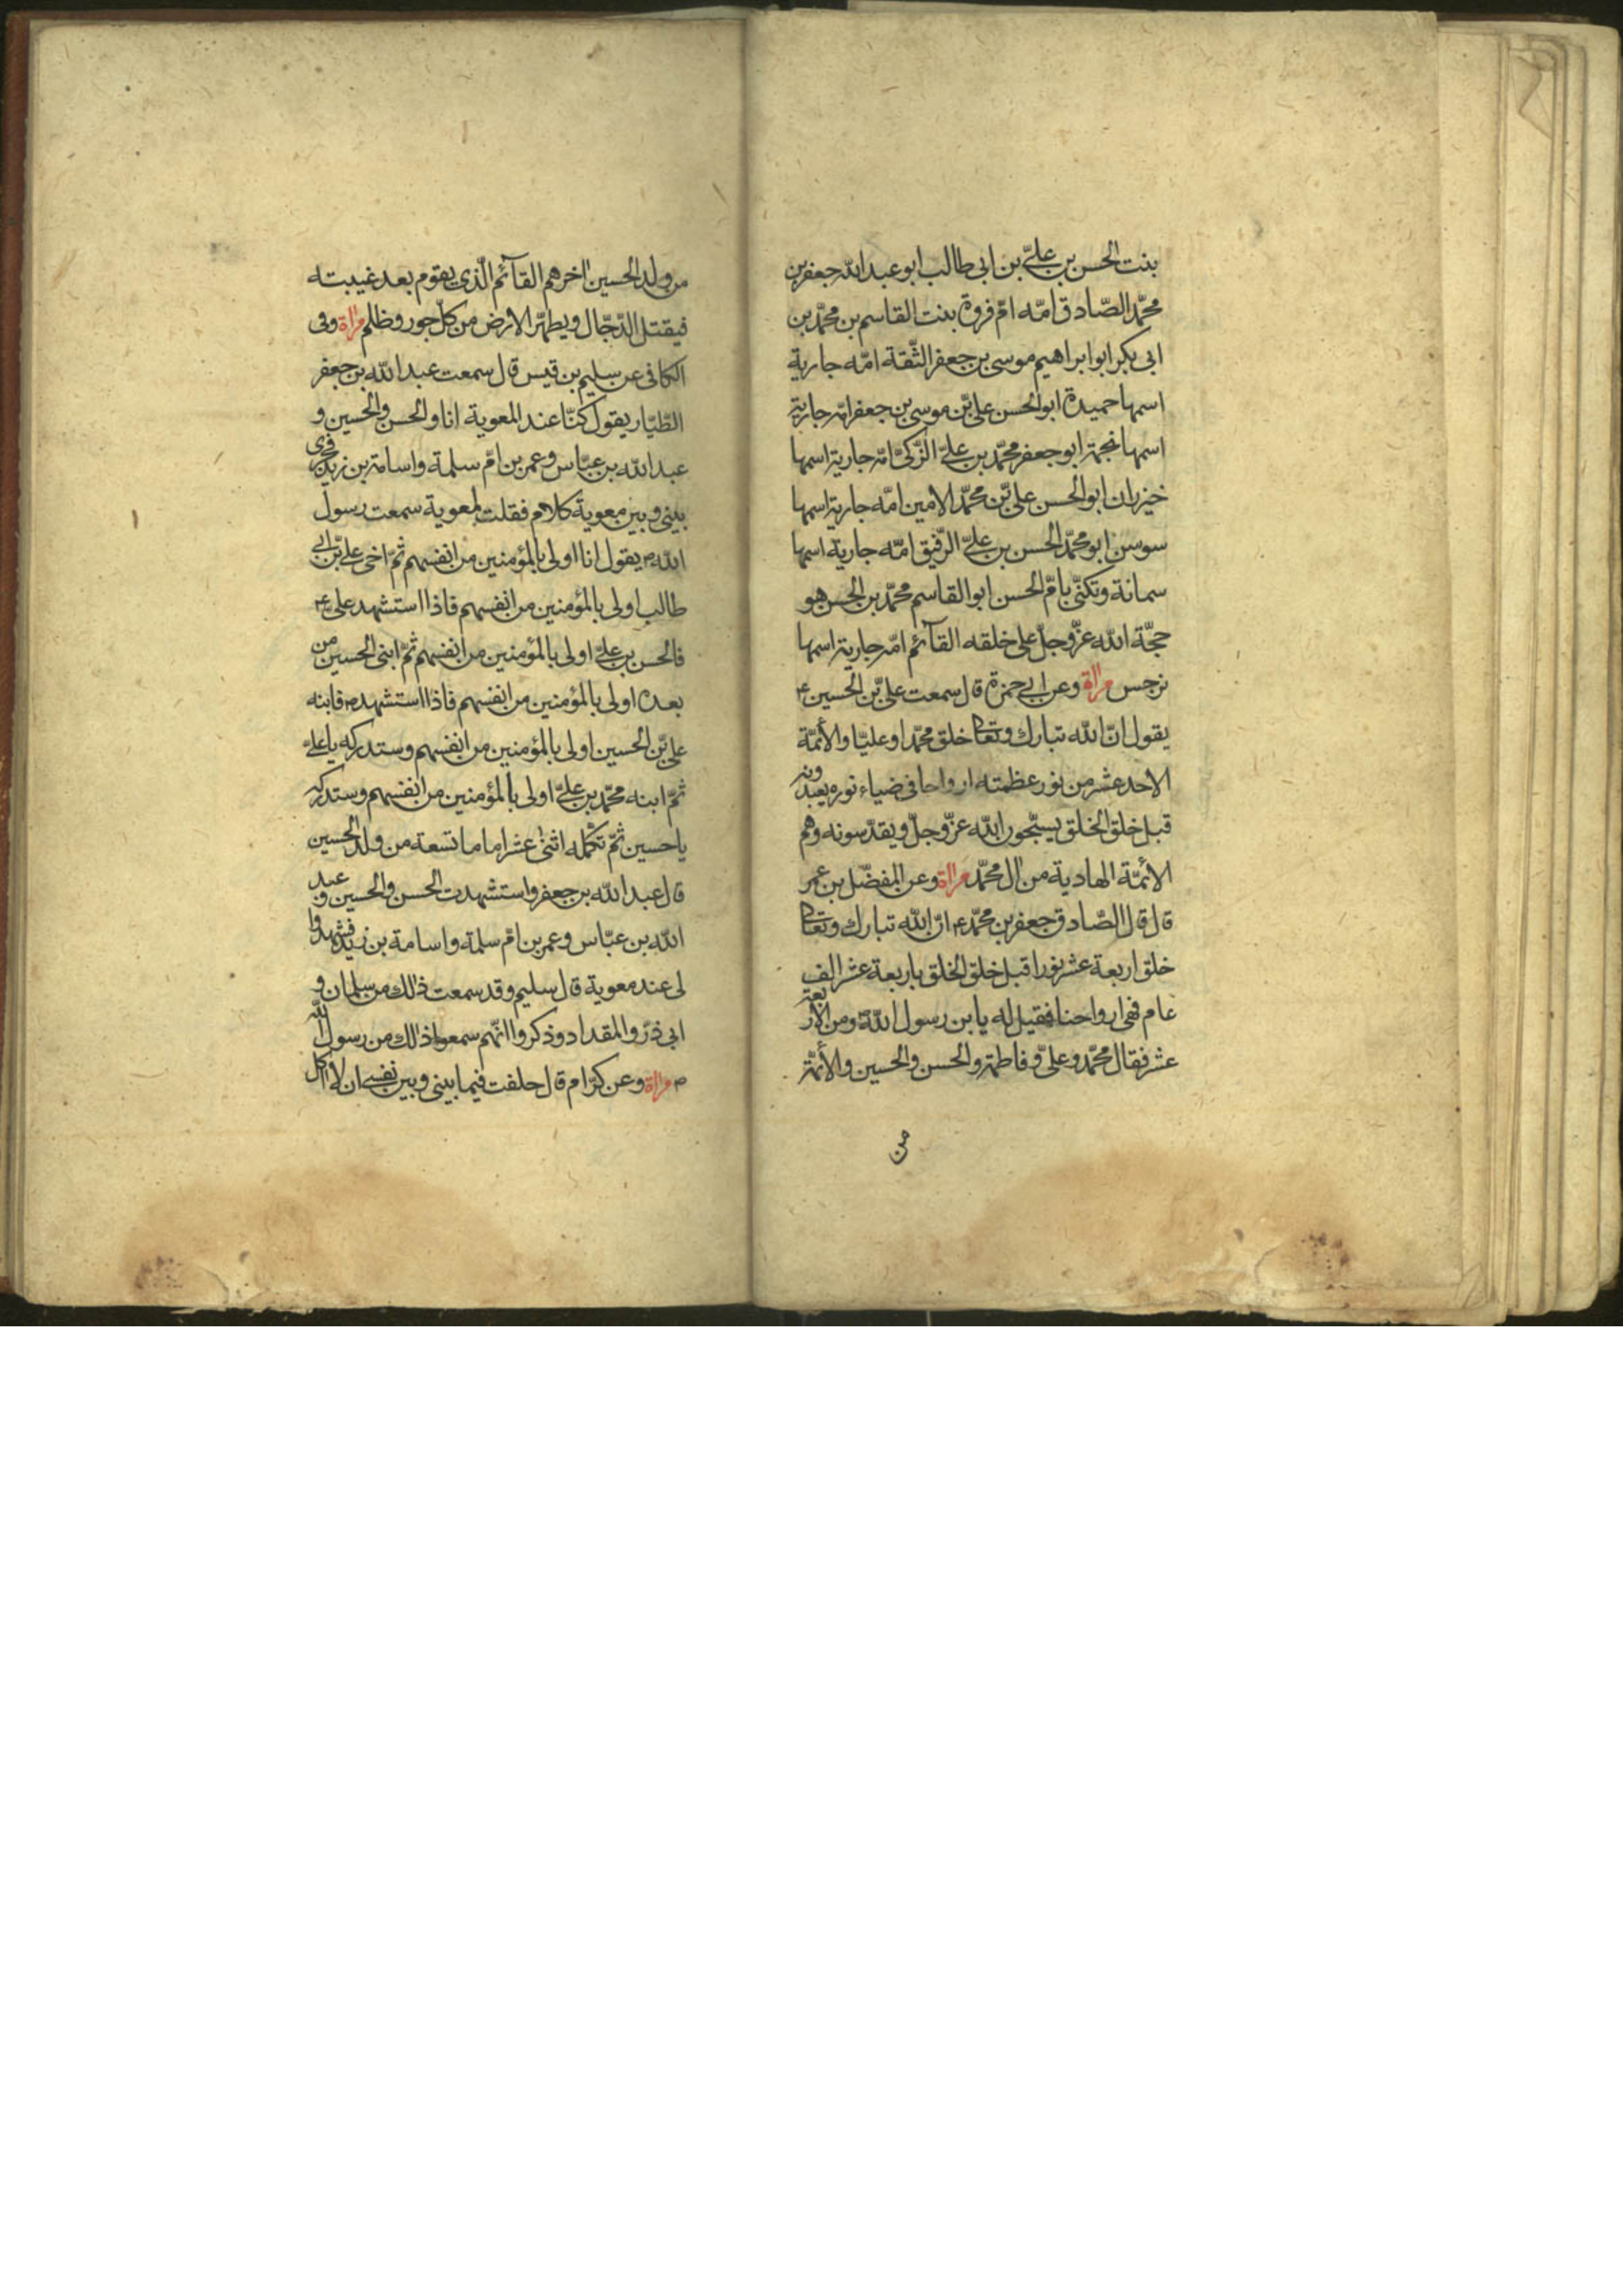 بنت الحسن بن علیّ بن ابی طالب ابو عبد الله جعفر بن
محمّد الصّادق امّه امّ فروة بنت القاسم بن محمّد بن
ابی بکر ابو ابراهیم موسی بن جعفر الثّقة امّه جاریة
اسمها حمیدة ابو الحسن علیّ بن موسی بن جعفر امّه جاریة
اسمها نجمة ابو جعفر محمّد بن علیّ الزّکیّ امّه جاریة اسمها
خیزران ابو الحسن علیّ بن محمّد الامین امّه جاریة اسمها
سوسن ابو محمّد الحسن بن علیّ الرّفیق امّه جاریة اسمها
سمانة وتکنّی بامّ الحسن ابو القاسم محمّد بن الحسن هو
حجّة الله عزّ وجلّ علی خلقه القآئم امّه جاریة اسمها
نرجس مراة وعن ابی حمزة قال سمعت علیّ بن الحسین ع
یقول انّ الله تبارك وتعالی خلق محمّدا وعلیّا والأئمّة
الاحد عشر من نور عظمته ارواحا فی ضیاء نوره یعبدونه
قبل خلق الخلق یسبّحون الله عزّ وجلّ ویقدّسونه وهم
الائمّة الهادیة من ال محمّد مراة وعن المفضّل بن عمر
قال قال الصّادق جعفر بن محمّد ع انّ الله تبارك وتعالی
خلق اربعة عشر نورا قبل خلق الخلق باربعة عشر الف
عام فهی ارواحنا فقیل له یا بن رسول الله ومن الاربعة
عشر فقال محمّد وعلیّ وفاطمة والحسن والحسین والأئمّة
من
من ولد الحسین اخرهم القآئم الّذی یقوم بعد غیبته
فیقتل الدّجّال ویطهّر الارض من کلّ جور وظلم مراة وفی
الکافی عن سلیم بن قیس قال سمعت عبد الله بن جعفر
الطّیّار یقول کنّا عند المعویة انا والحسن والحسین و
عبد الله بن عبّاس وعمر بن امّ سلمة واسامة بن زید فجری
بینی وبین معویة کلام فقلت لمعویة سمعت رسول
الله ص یقول انا اولی بالمؤمنین من انفسهم ثمّ اخی علیّ بن ابی
طالب اولی بالمؤمنین من انفسهم فاذا استشهد علی ع
فالحسن بن علیّ اولی بالمؤمنین من انفسهم ثمّ ابنی الحسین من
بعده اولی بالمؤمنین من انفسهم فاذا استشهد فابنه
علیّ بن الحسین اولی بالمؤمنین من انفسهم وستدرکه یا علیّ
ثمّ ابنه محمّد بن علیّ اولی بالمؤمنین من انفسهم وستدرکه
یا حسین ثمّ تکمّله اثنی عشر اماما تسعة من ولد الحسین
قال عبد الله بن جعفر واستشهدت الحسن والحسین وعبد
الله بن عبّاس وعمر بن امّ سلمة واسامة بن زید فشهدوا
لی عند معویة قال سلیم وقد سمعت ذالك من سلمان و
ابی ذرّ والمقداد وذکروا انّهم سمعوا ذالك من رسول الله
ص مراة وعن کرّام قال حلفت فیما بینی وبین نفسی ان لا اکل